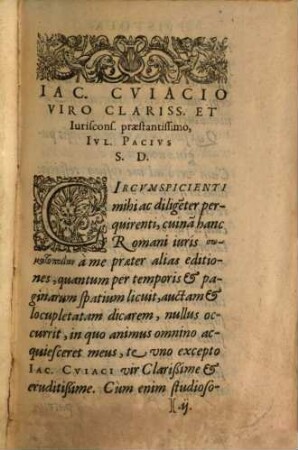 IAC. CVIACIO
VIRO CLARISS. ET
Iurisconſ. præſtantiſſimo,
IVL. PACIVS
S. D.
CIRCVMSPICIENTI
mihi ac diligẽter per-
quirenti, cuinā hanc
Romani iuris
à me præter alias editio
nes, quantum per temporis &
paginarum ſpatium licuit, auctam &
locupletatam dicarem, nullus oc-
currit, in quo animus omnino ac-
quieſceret meus, te vno excepto
IAC. CVIACI vir Clariſſime &
eruditiſſime. Cùm enim ſtudioſo-
ij.